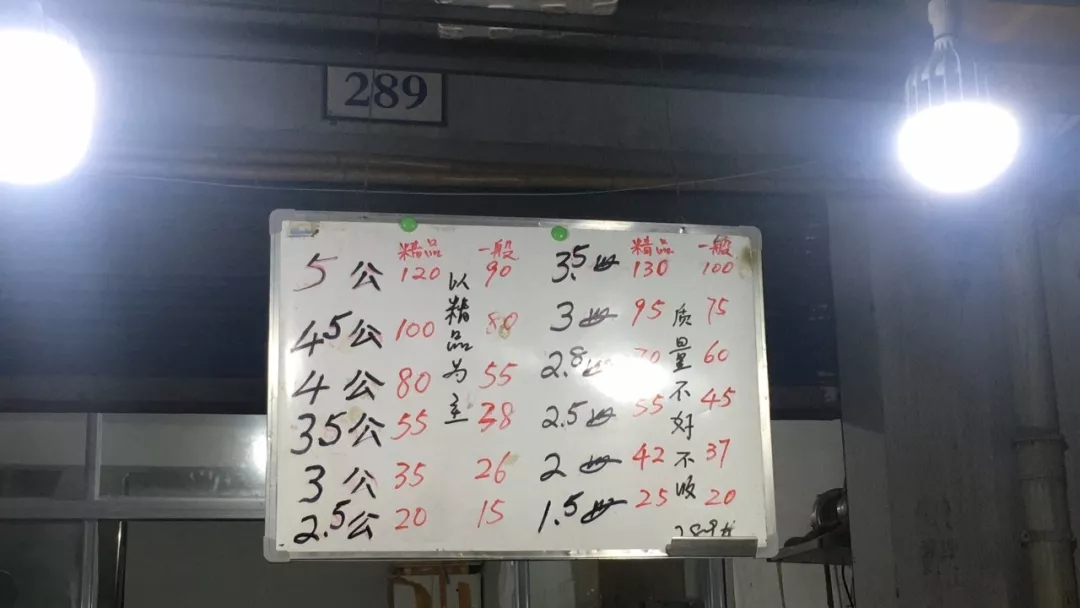 289
精品 一般 精品 一般
5公 120 90 3.5母 130 100
4.5公 100 80 3母 95 75
4公 80 55 2.8母 70 60
3.5公 55 38 2.5母 55 45
3公 35 26 2母 42 37
2.5公 20 15 1.5母 25 20
以精品为主
质量不好不收